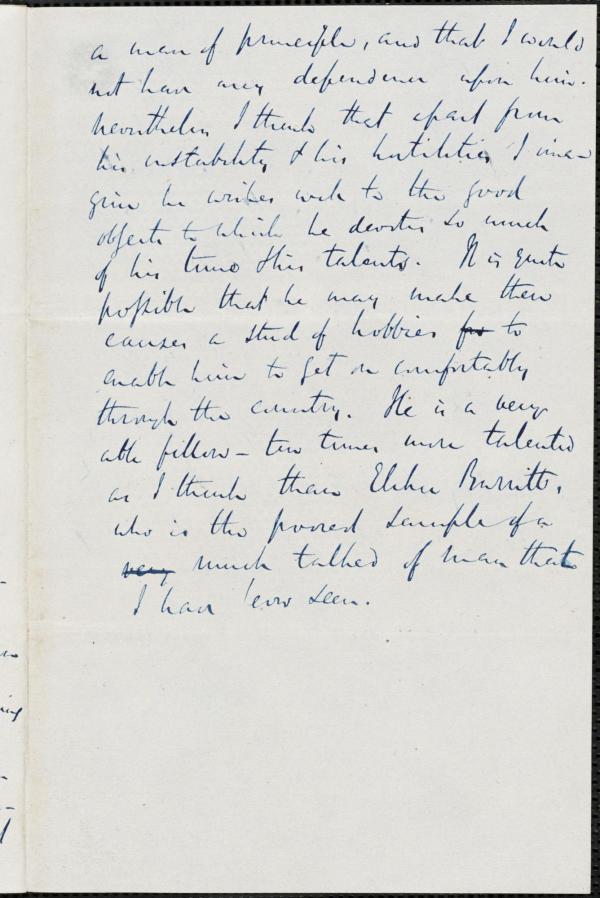 a man of principle, and that I would
not have any dependence upon him.
Nevertheless I think that apart from
his instability & his hostilities I ima-
gine he wishes well to the good
objects to which he devotes so much
of his time & his talents. It is quite
possible that he may make these
causes a stud of hobbies for to
enable him to get on comfortably
through the country. He is a very
able fellow – ten times more talented
as I think than Elihu Burritt,
who is the poorest sample of a
very much talked of man that
I have ever seen.